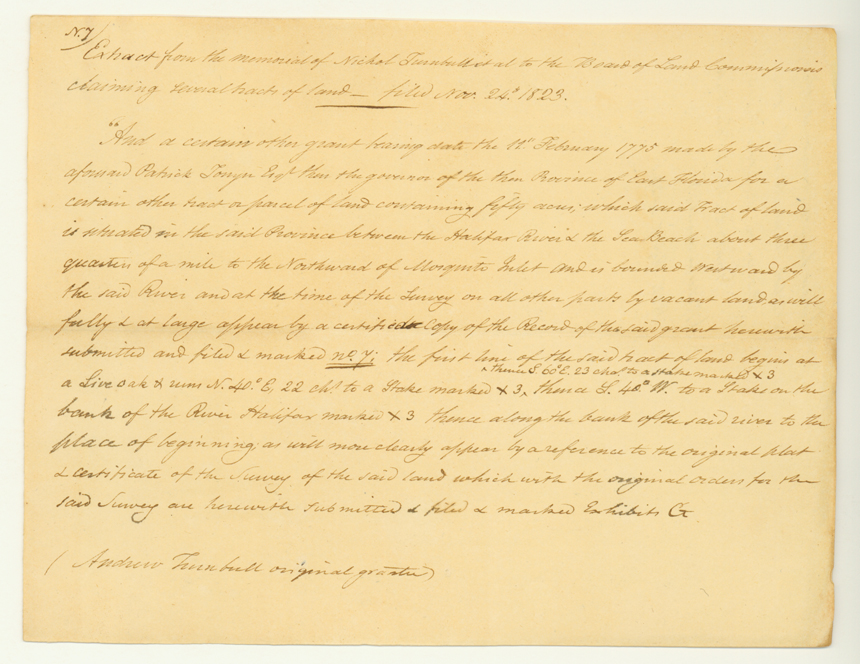 N. 7)
Extract from the memorial of Nichol Turnbull et al to the Board of Land Commissioners
claiming several tracts of land — filed Nov. 24th 1823.
"And a certain other grant bearing date the February 1775 made by the
aforesaid Patrick Tonyn Esqr then the governor of the then Province of East Florida for a
certain other tract or parcel of land containing fifty acres; which said Tract of land
is situated in the said Province between the Halifax River & the Sea Beach about three
quarters of a mile to the Northward of Mosquito Inlet and is bounded Westward by
the said River and at the time of the Survey on all other parts by vacant land as will
fully & at large appear by a certified Copy of the Record of the said grant herewith
submitted and filed & marked no. 7; the first line of the said tract of land begins at
^ thence S. 60° E. 23 chs. to a stake marked X 3
a Live oak X runs N. 40° E, 22 chs. to a Stake marked X 3, thence S. 40° W. to a Stake on the
bank of the River Halifax marked X 3 thence along the bank of the said river to the
place of beginning; as will more clearly appear by a reference to the original plat
& certificate of the Survey of the said land which with the original orders for the
said Survey are herewith submitted & filed & marked Exhibits G
( Andrew Turnbull original grantee)